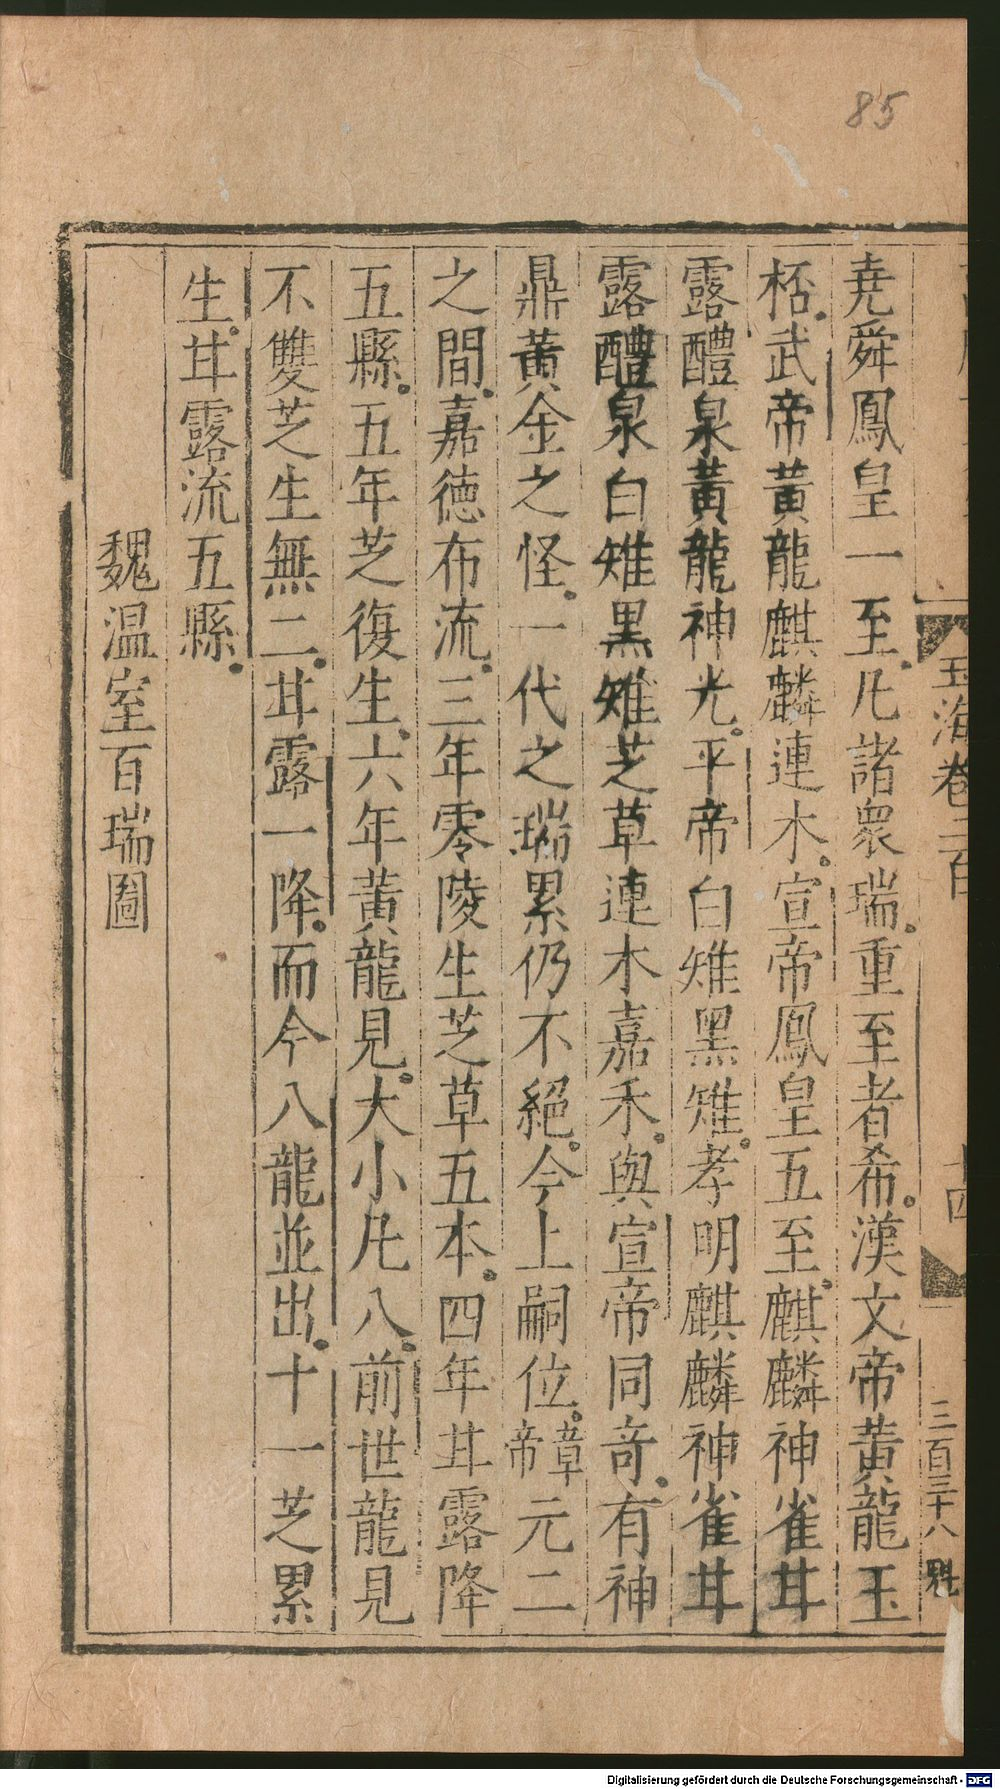 85
玉海卷二百
十四
三百三十八
堯舜鳳皇一至凡諸衆瑞重至者希漢文帝黃龍玉
桮武帝黃龍麒麟連木宣帝鳳皇五至麒麟神雀甘
露醴泉黃龍神光平帝白雉黑雉孝明麒麟神雀甘
露醴泉白雉黑雉芝草連木嘉禾與宣帝同竒有神
鼎黃金之怪一代之瑞累仍不絕今上嗣位章帝元二
之間嘉德布流三年零陵生芝草五本四年甘露降
五縣五年芝復生六年黃龍見大小凡八前世龍見
不雙芝生無二甘露一降而今八龍並出十一芝累
生甘露流五縣
魏温室百瑞圖
Digitalisierung gefördert durch die Deutsche Forschungsgemeinschaft - DFG